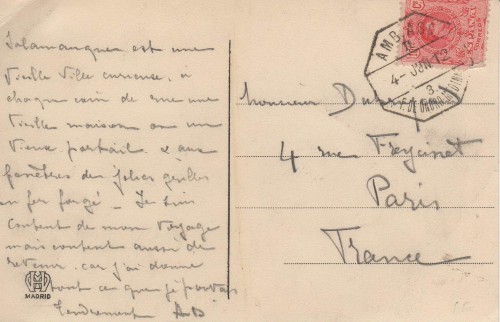 Salamanque est une
vieille ville curieuse, à
chaque coin de rue une
vieille maison ou un
vieux portail & aux
fenêtres des jolies grilles
en fer forgé — Je suis
content de mon voyage
mais content aussi de
revenir car j'ai donné
tout ce que je pouvais
Tendrement AD
MADRID
AMB.
4-JUN 13
3
Monsieur
4 rue Freycinet
Paris
France